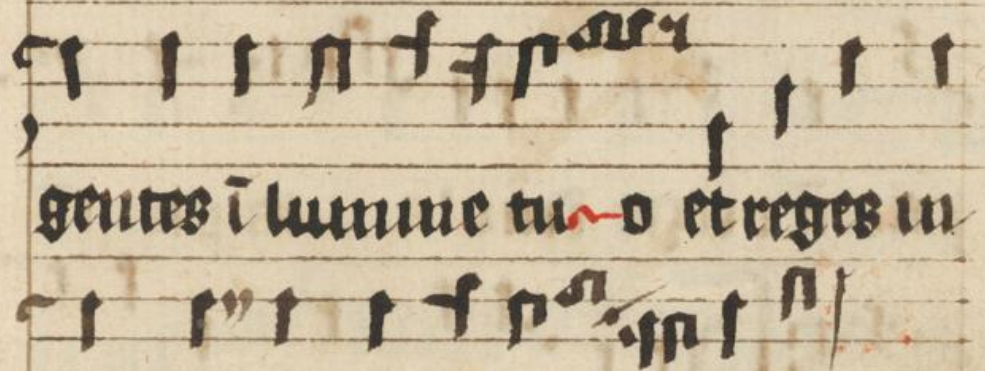 gentes ī lumine tu o et reges in